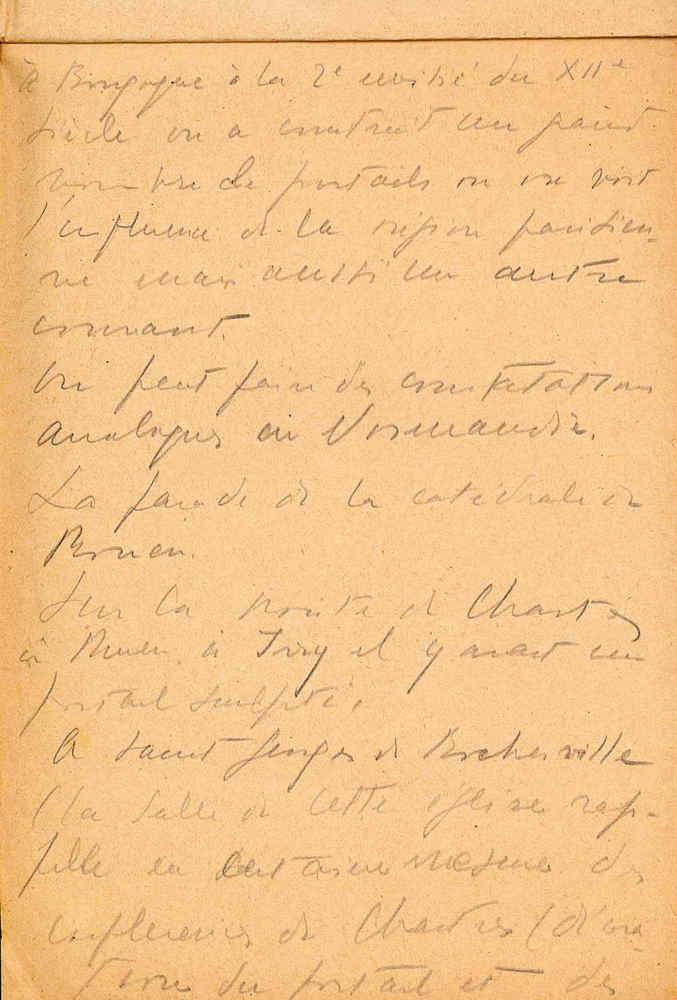 à Bourgogne à la 2e moitié du XIIe
siècle on a construit un grand
nombre de portails ou on voit
l'influence de la région parisien-
ne mais aussi un autre
courant.
On peut faire des constatations
analogues en Normandie.
La façade de la catédrale de
Rouen.
Sur la route de Chartres
à Rouen à Ivry il y avait un
portail sculpté.
A Saint Georges de Bocherville
(la salle de cette église rap-
pelle en certaine mesure des
influences de Chartres (d'
du portail et des